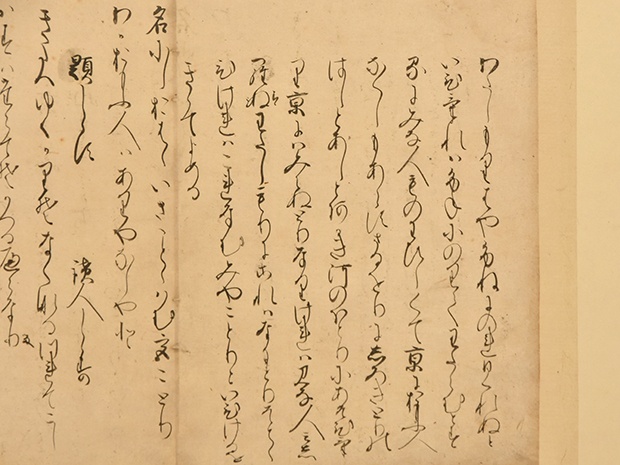 わたしもりはやふねにのれ日くれぬと
いひけれはふねにのりてわたらむとす
るにみな人ものわひしくて京におもふ人
なくしもあらすさるをりにしろきとりの
はしとあしとあかき河のほとりにあそひけ
り京にはみえぬとりなりけれはみな人みし
らすわたしもりにこれはなにとりそと
とひけれはこれなむみやことりといひけるを
きゝてよめる
名にしおはゝいさことゝはむ宮ことり
わかおもふ人はありやなしやと
題しらす　読人しらす
きたへゆくかりそなくなるつれてこし
かすはたらてそかへるへらなる